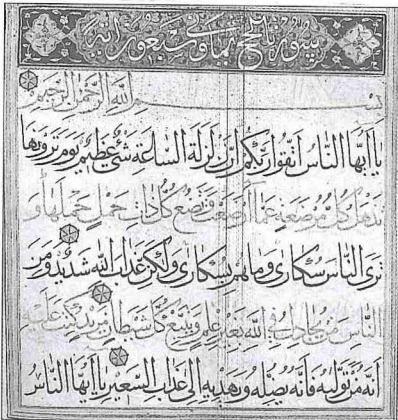 سورة الحج ثماني وسبعون آية
بسم الله الرحمن الرحيم
يا أَيُّهَا النَّاسُ اتَّقُوا رَبَّكُمْ إِنَّ زَلْزَلَةَ السَّاعَةِ شَيْءٌ عَظِيمٌ يَوْمَ تَرَوْنَهَا
تَذْهَلُ كُلُّ مُرْضِعَةٍ عَمَّا أَرْضَعَتْ وَتَضَعُ كُلُّ ذَاتِ حَمْلٍ حَمْلَهَا وَ
تَرَى النَّاسَ سُكَارَى وَمَا هُمْ بِسُكَارَى وَلَكِنَّ عَذَابَ اللَّهِ شَدِيدٌ وَمِنَ
النَّاسِ مَنْ يُجَادِلُ فِي اللَّهِ بِغَيْرِ عِلْمٍ وَيَتَّبِعُ كُلَّ شَيْطَانٍ مَرِيدٍ كُتِبَ عَلَيْهِ
أَنَّهُ مَنْ تَوَلَّاهُ فَأَنَّهُ يُضِلُّهُ وَيَهْدِيهِ إِلَى عَذَابِ السَّعِيرِ يَا أَيُّهَا النَّاسُ